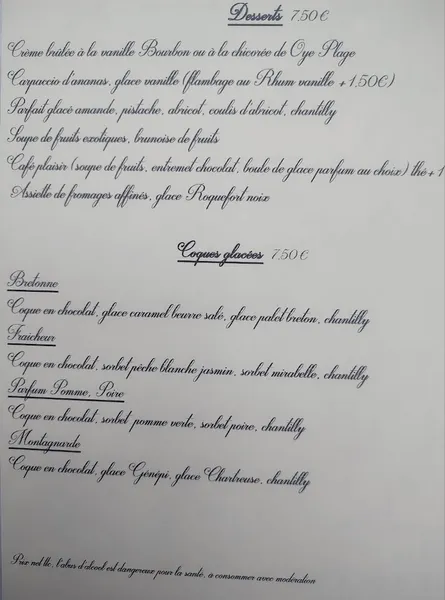 Desserts 7.50 €
Crème brûlée à la vanille Bourbon ou à la chicorée de Oye Plage
Carpaccio d'ananas, glace vanille (flambage au Rhum vanille +1,50€)
Parfait glacé amande, pistache, abricot, coulis d'abricot, chantilly
Soupe de fruits exotiques, brunoise de fruits
Café plaisir (soupe de fruits, entremet chocolat, boule de glace parfum au choix) thé +1
Assiette de fromages affinés, glace Roquefort noix
Coques glacées 7.50 €
Bretonne
Coque en chocolat, glace caramel beurre salé, glace palet breton, chantilly
Fraicheur
Coque en chocolat, sorbet pêche blanche jasmin, sorbet mirabelle, chantilly
Parfum Pomme, Poire
Coque en chocolat, sorbet pomme verte, sorbet poire, chantilly
Montagnarde
Coque en chocolat, glace Génépi, glace Chartreuse, chantilly
Prix net ttc, l'abus d'alcool est dangereux pour la santé, à consommer avec modération